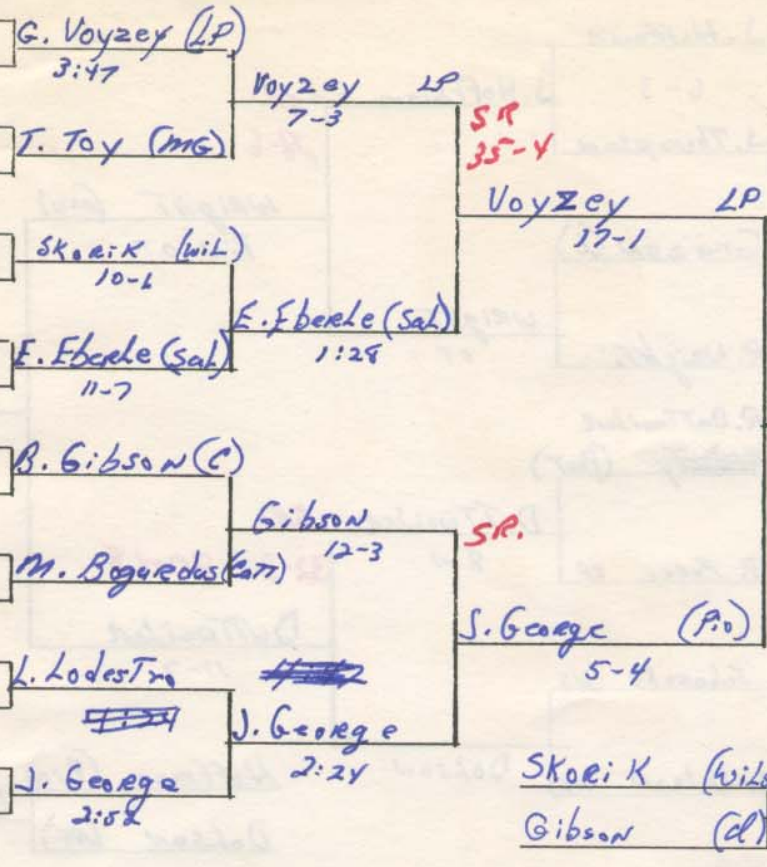 G. Voyzey (LP)
3:47
T. Toy (MG)
Skorik (Wil)
10-6
E. Eberle (Sal)
11-7
B. Gibson (C)
M. Bogardus (Catt)
L. LodesTro
J. George
2:52
Voyzey LP
7-3
E. Eberle (Sal)
1:28
Gibson
12-3
J. George
2:24
SR
35-4
Voyzey LP
17-1
SR.
J. George (Pio)
5-4
Skorik (Wil
Gibson (Cl)